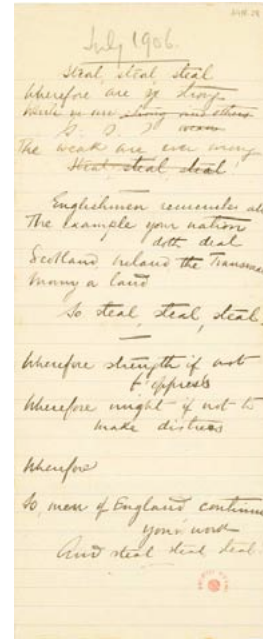 July 1906.
Steal, steal, steal
Wherefore are ye strong
strong and others
S. S. S
The weak are ever wrong
Steal, steal, steal!
Englishmen remember
The example your nation
doth deal
Scotland Ireland the Transvaal
Many a land
So steal, steal, steal.
Wherefore strength if not
t'oppress
Wherefore might if not to
make distress
Wherefore
So, men of England continue
your work
And steal steal steal.